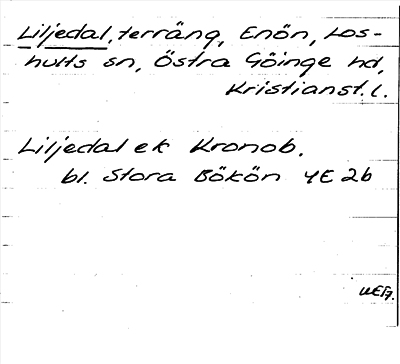 Liljedal, terräng, Enön, Los-
hults sn, Östra Göinge hd,
Kristianst. l.
Liljedal ek Kronob.
bl. Stora Bökön 4E 2b